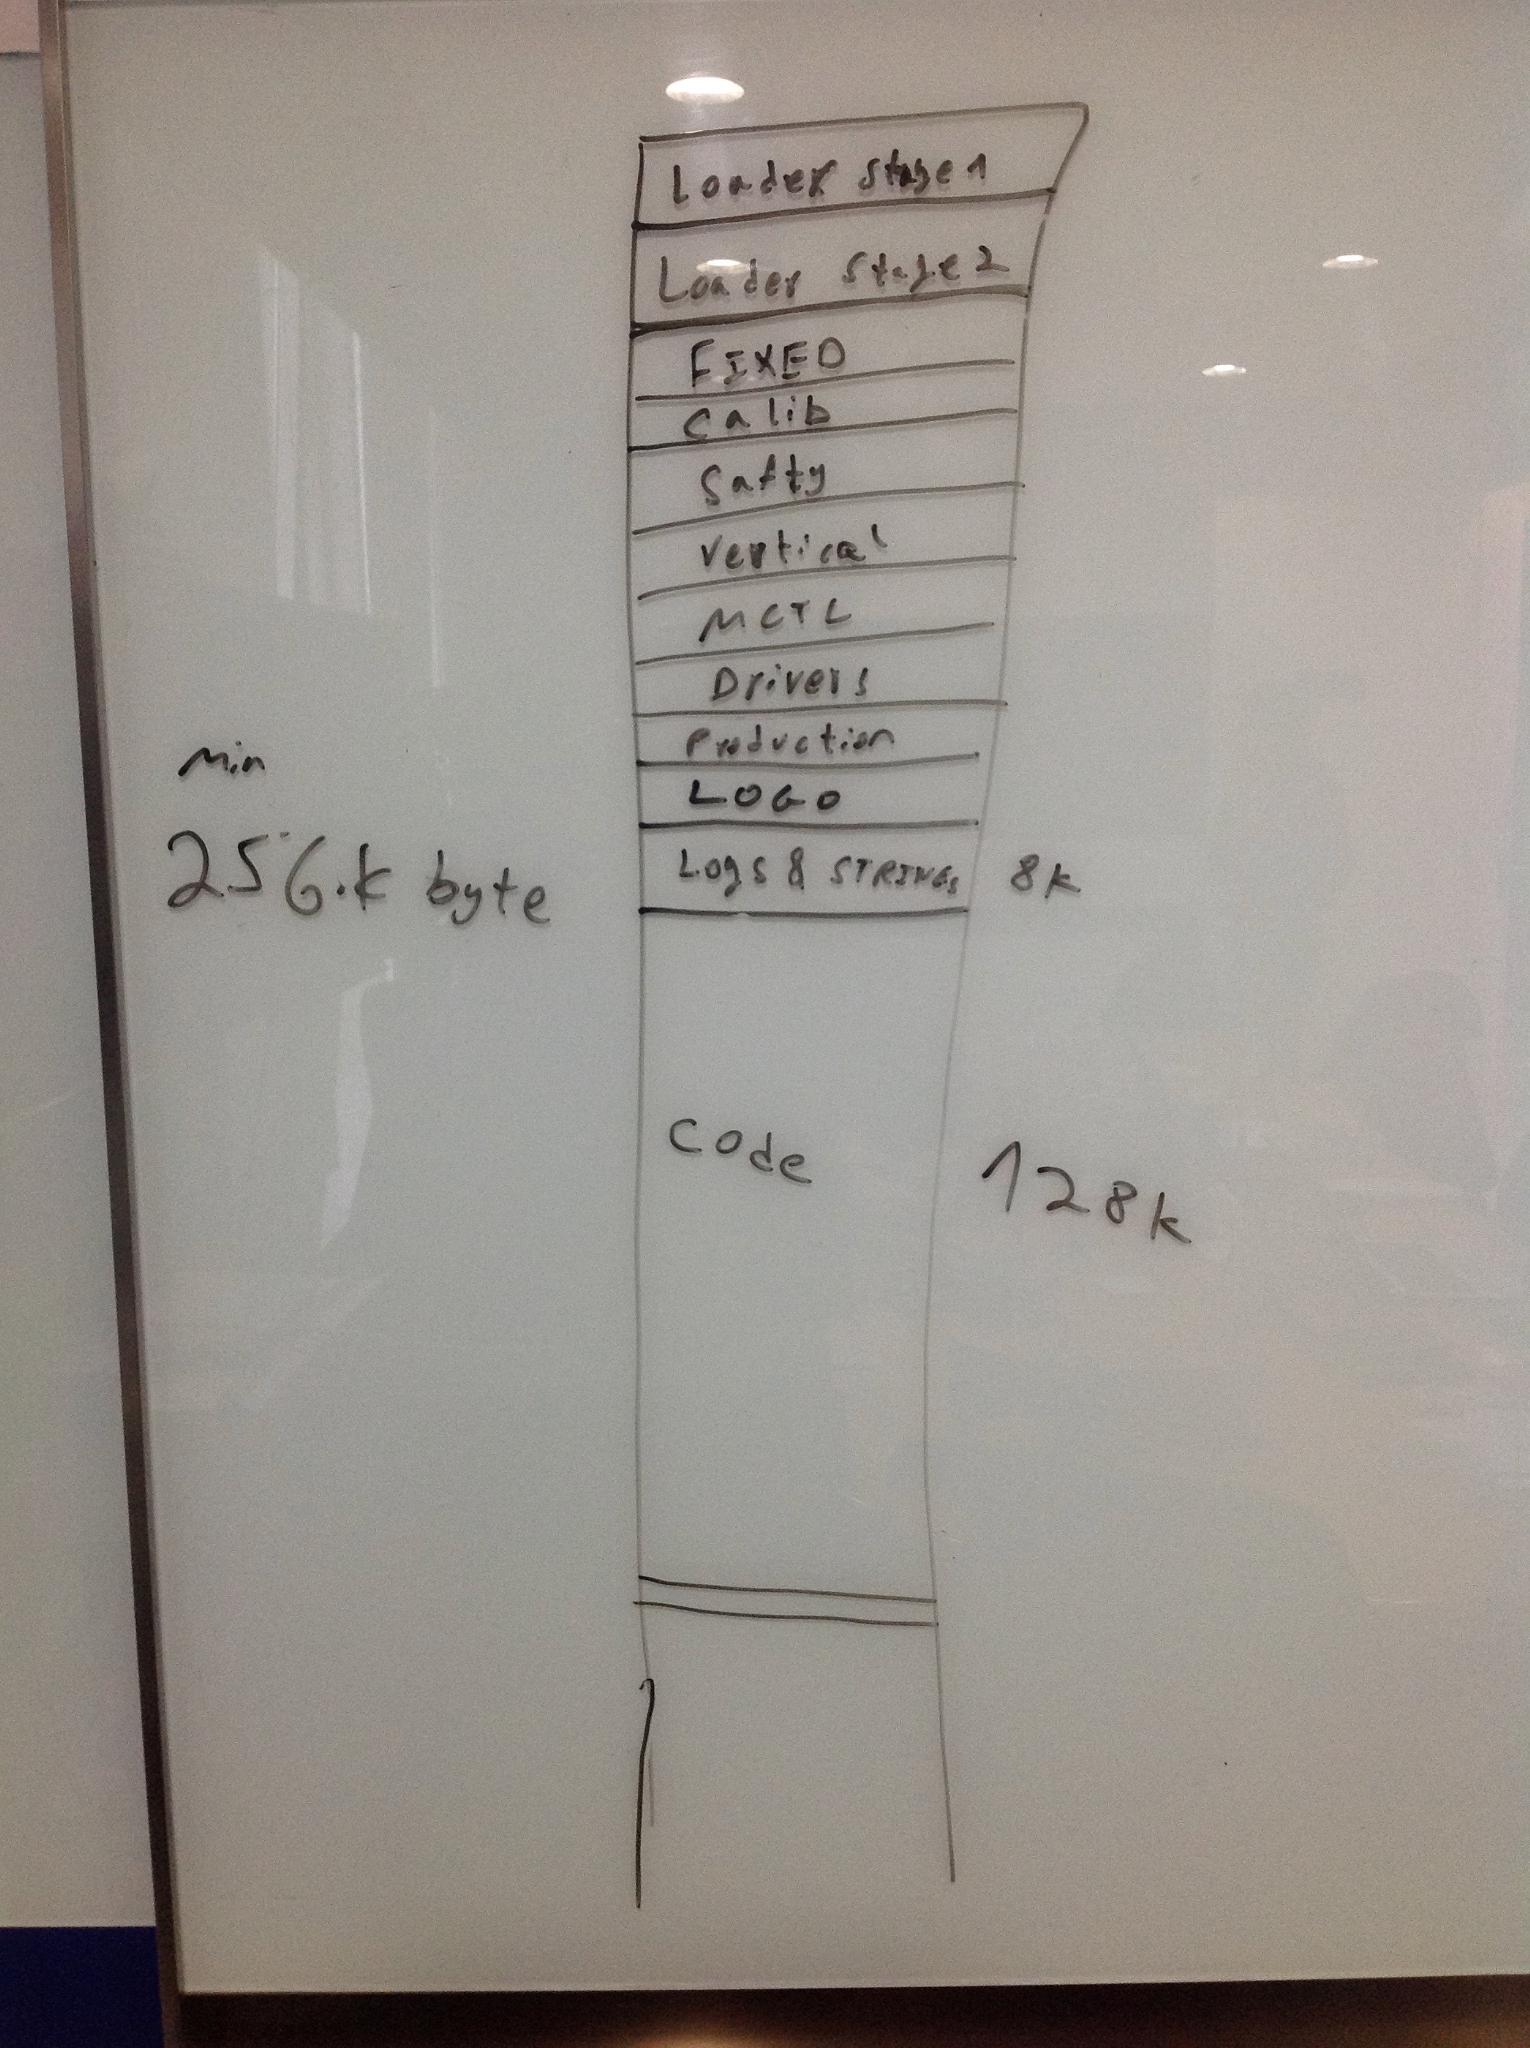 Loader Stage 1
Loader Stage 2
FIXED
Calib
Safty
Vertical
MCTL
Drivers
Production
LOGO
Logs & STRINGs 8k
Min
256.k byte
Code
128k